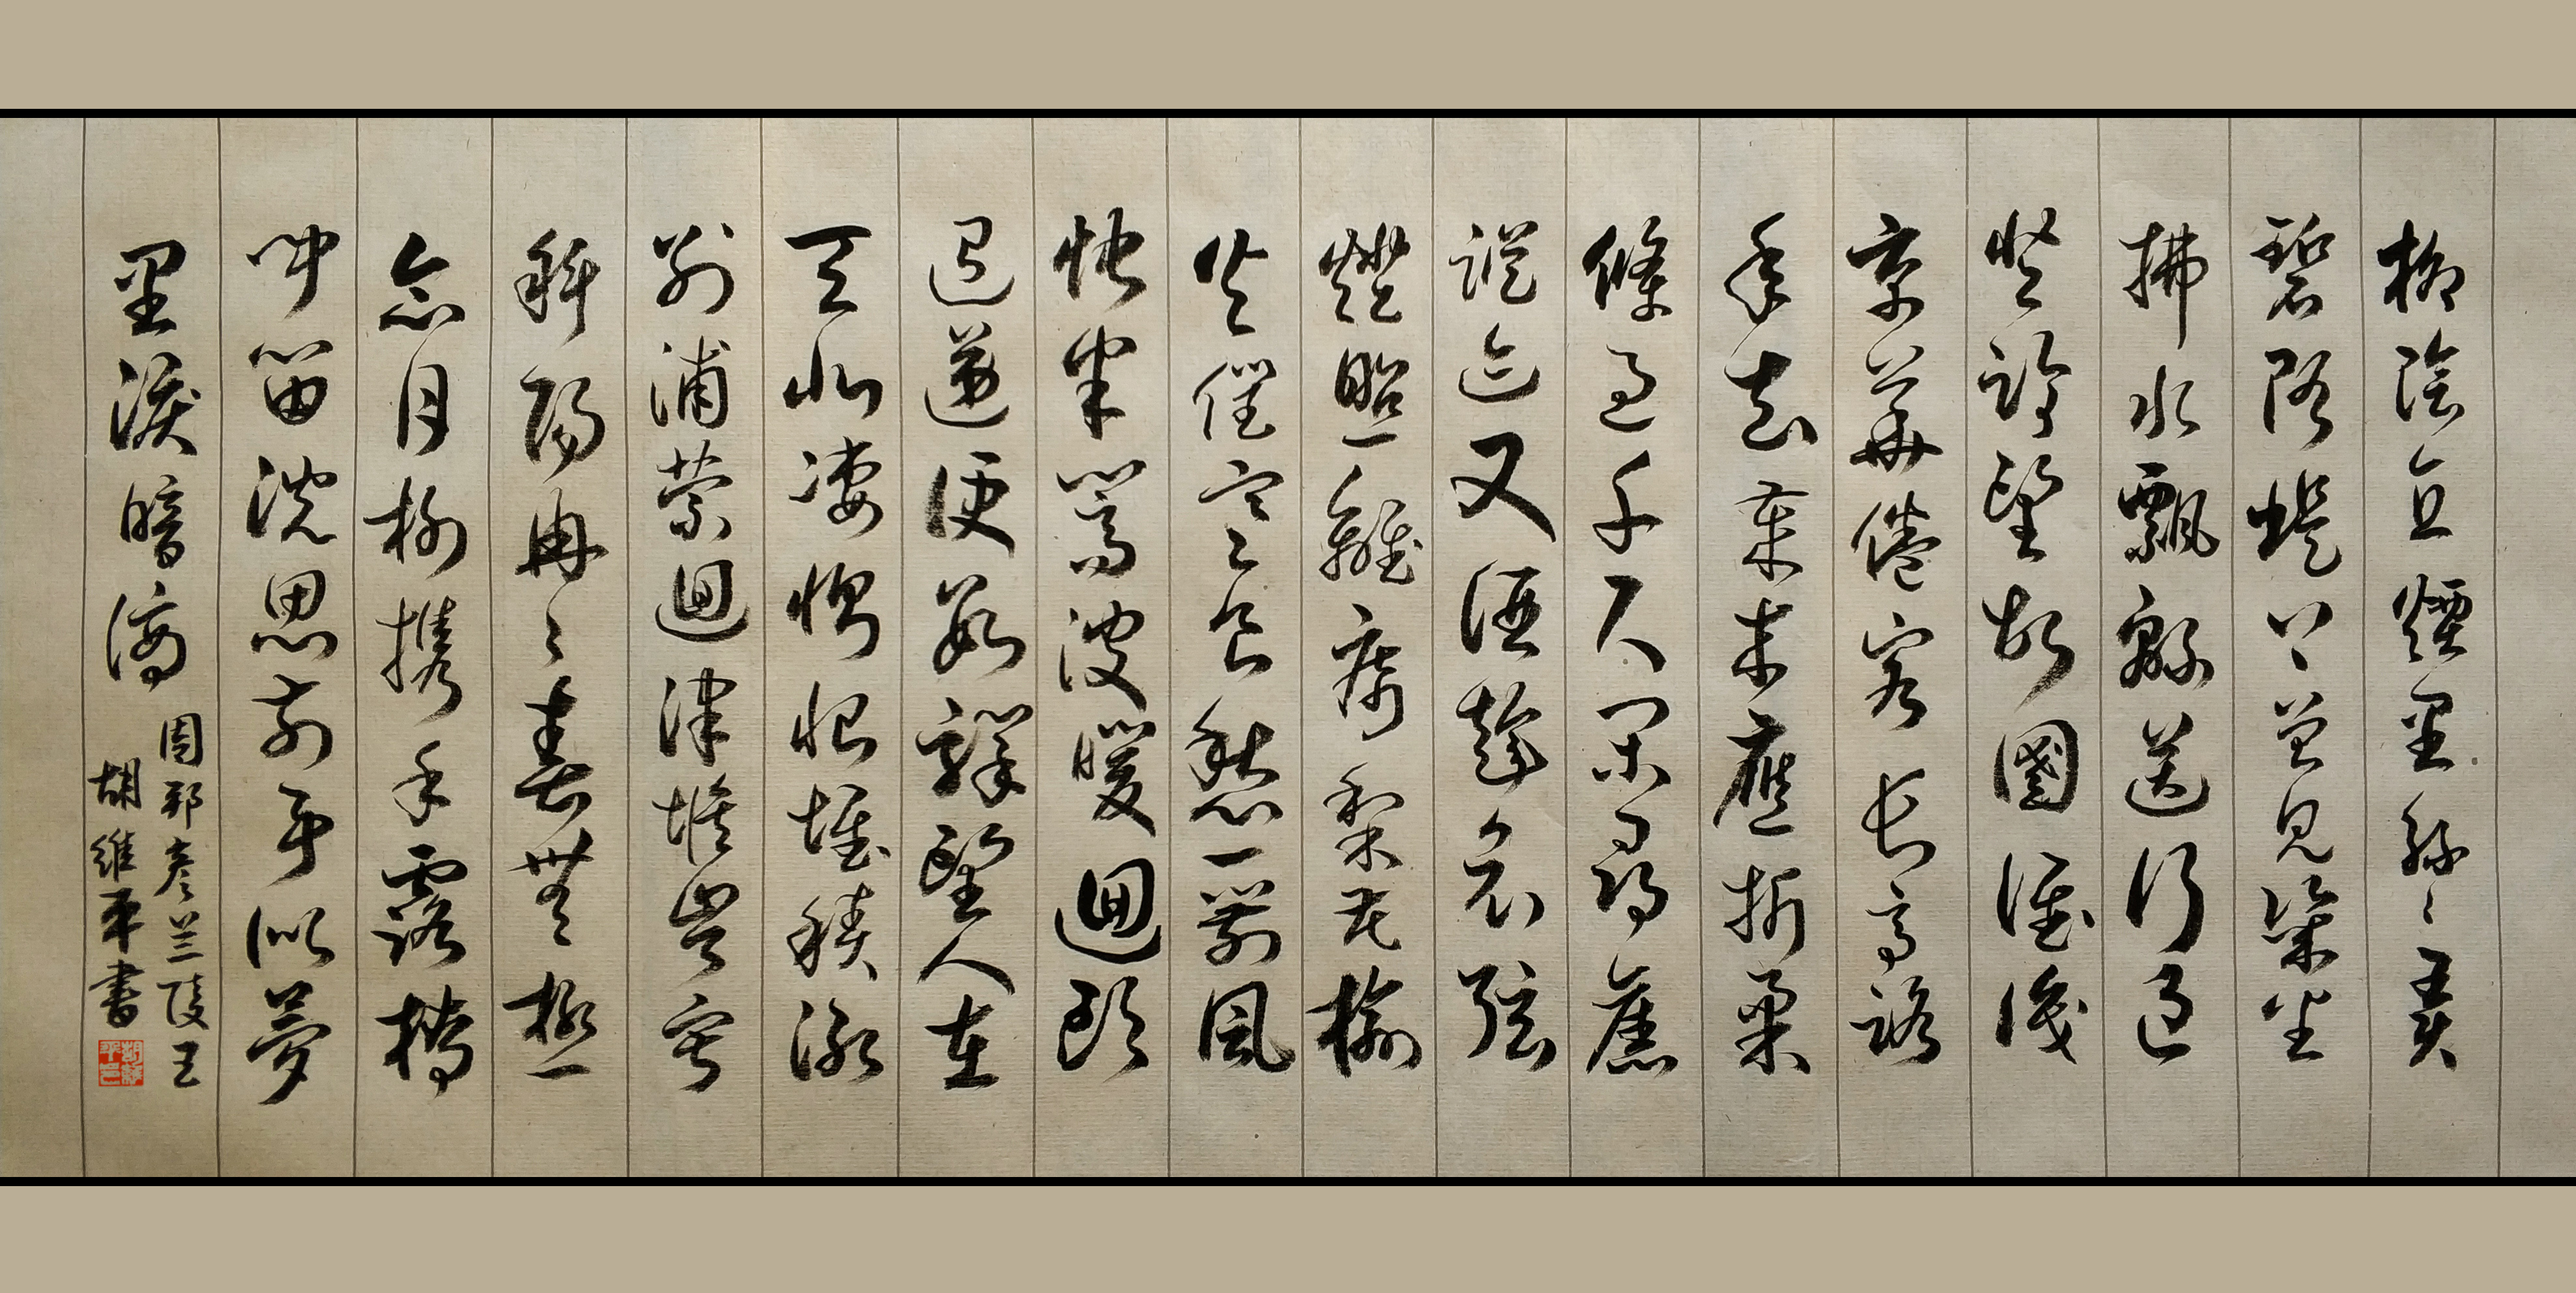 柳陰直煙里絲々弄
碧隋堤上曾見幾番
拂水飄綿送行色
登臨望故國誰識
京華倦客長亭路
年去歲來應折柔
條過千尺閑尋舊
蹤迹又酒趁哀弦
燈照離席梨花榆
火催寒食愁一箭風
快半篙波暖迴頭
迢遞便數驛望人在
天北凄惻恨堆積漸
別浦縈迴津堠岑寂
斜陽冉々春無極
念月榭攜手露橋
聞笛沈思前事似夢
里淚暗滴
周邦彥兰陵王
胡維平書